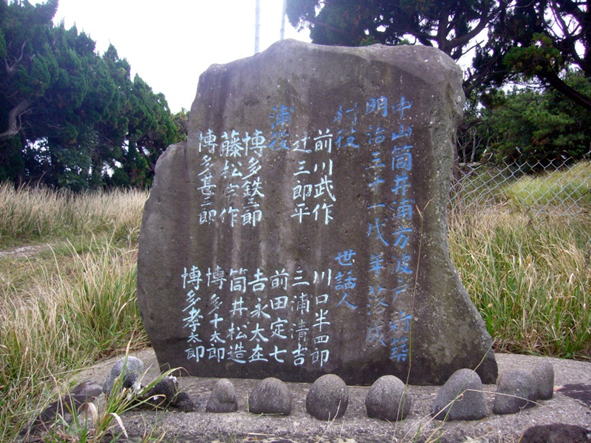 中山筒井浦方波戸新築
明治三十一戌年落成
行役
前川武作
辻三郎平
浦役
博多鉄三郎
藤松作
博多甚三郎
世話人
川口半四郎
三浦清吉
前田定七
吉永太左
筒井松造
博多十太郎
博多孝太郎